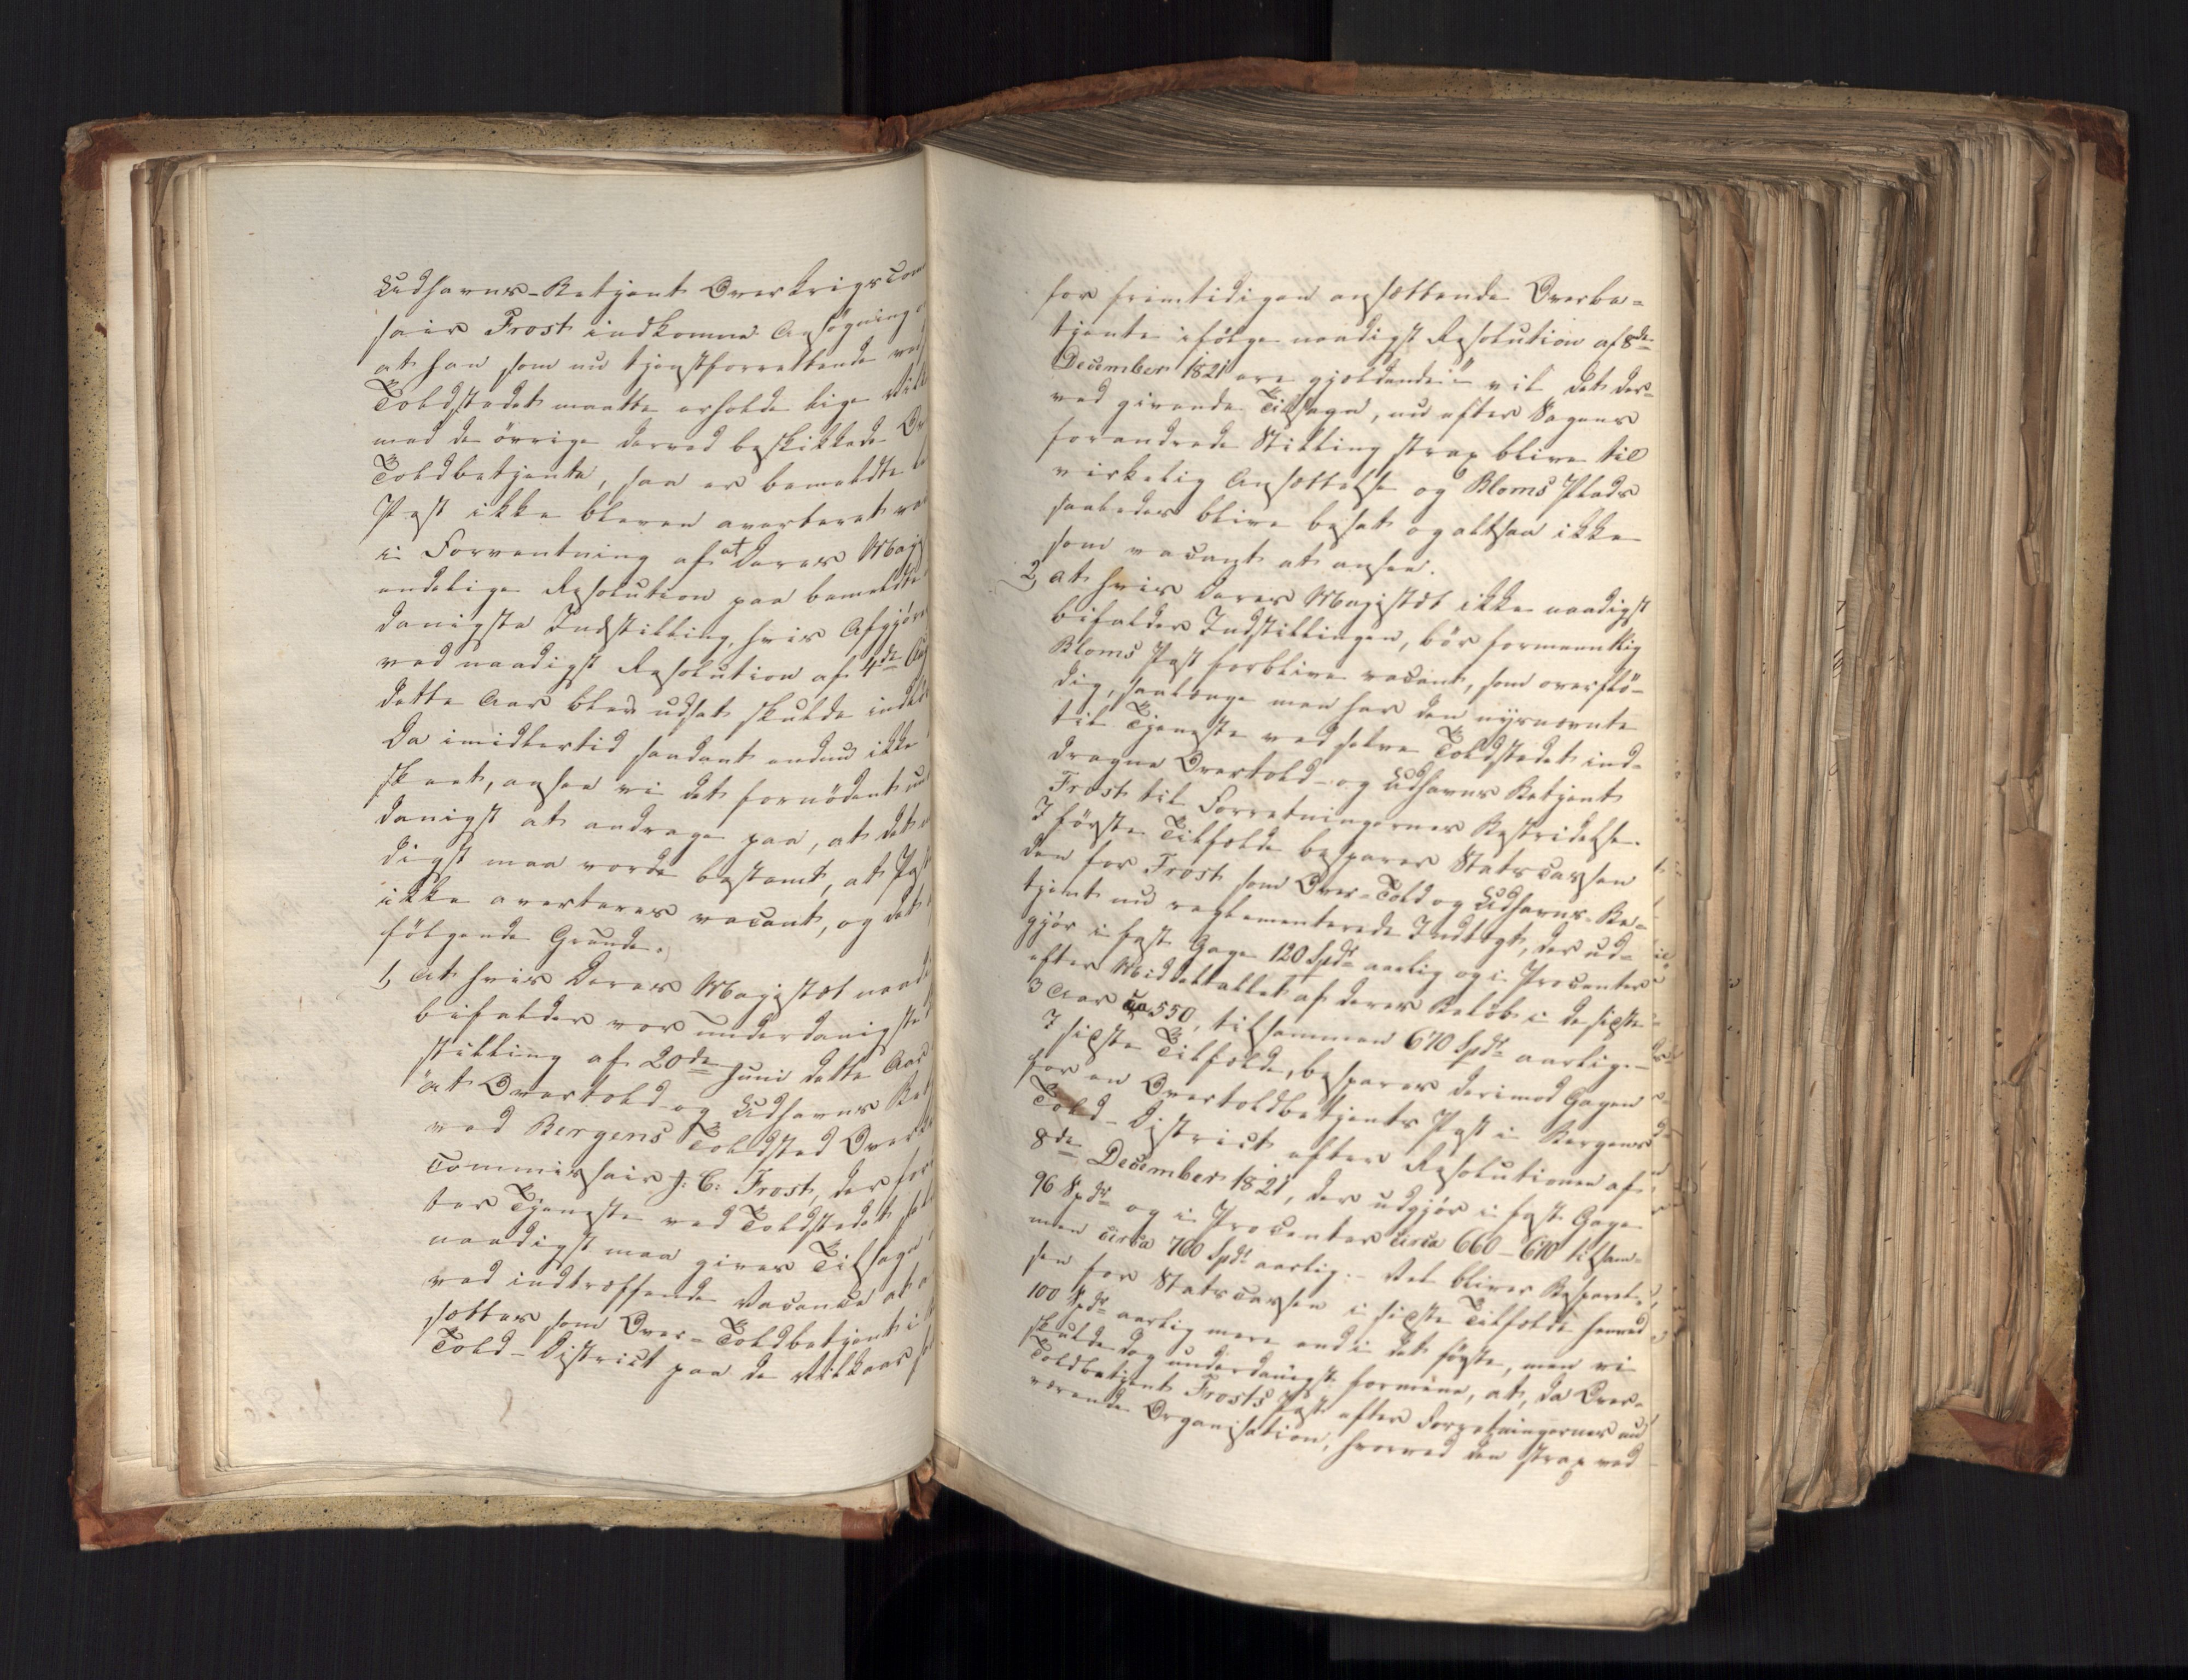 Udhavns-Betjent Overkrigscom
sair Frost indkomne Ansögning
at han som nu tjenstforrettende ved
Toldstedet maatte erholde lige Vilk
med de övrige derved beskikkede Ov
Toldbetjente, saa er bemeldte
Post ikke bleven averteret va
i Forventning af at Deres Maj
endelige Resolution paa bemeldte
danigste Indstilling, hvis Afgjöre
ved naadigst Resolution af 4de Au
dette Aar blev udsat skulde indlö
Da imidlertid saadant endnu ikke
skeet, ansee vi det fornödent un
danigst at andrage paa, at det
digst maa vorde bestemt, at Post
ikke averteres vacant, og det
fölgende Grunde.
1, At hvis Deres Majestæt naad
bifalder vor underdanigste
stilling af 20de Juni dette Aar
"at Overtold- og Udhavns Bet
ved Bergens Toldsted Overk
Commissair J: C: Frost, der for
ter Tjeneste ved Toldstedet sel
naadigst maa gives Tilsagn
ved indtræffende Vacance at a
sættes som Over-Toldbetjent i
Told-District paa de Vilkaar so
for fremtidigen ansættende Overbe-
tjente ifölge naadigst Resolution af 8de
December 1821 ere gjældende" vil det der-
ved givende Tilsagn, nu efter Sagens
forandrede Stilling strax blive til
virkelig Ansættelse og Bloms Plads
saaledes blive besat og altsaa ikke
som vacant at ansee.
2, at hvis Deres Majestæt ikke naadigst
bifalder Indstillingen, bör formeentlig
Bloms Post forblive vacant, som overflö-
dig, saalænge man har den nysnævnte
til Tjeneste ved selve Toldstedet ind-
dragne Overtold- og Udhavns Betjent
Frost til Forretningernes Bestridelse.
I förste Tilfælde besparer Statscassen
den for Frost som Over-Told og Udhavns-Be-
tjent nu reglementerede Indtægt, der ud-
gjör i fast Gage 120 Spdr aarlig og i Procenter
efter Middeltallet af deres Belöb i de sidste
3 Aar ca 550, tilsammen 670 Spdr aarlig.-
I sidste Tilfælde, bespares derimod Gagen
for en Overtoldbetjents Post i Bergens
Told-District efter Resolutionen af
8de December 1821, der udgjör i fast Gage
96 Spdr og i Procenter circa 660-670 tilsam-
men circa 760 Spdr aarlig:- Vel bliver Besparel-
sen for Statscassen i sidste Tilfælde henved
100 Spdr aarlig mere end i det förste, men vi
skulde dog underdanigst formene, at, da Over-
Toldbetjent Frosts Post efter Forretningernes nu
værende Organisation, hvorved den strax ved